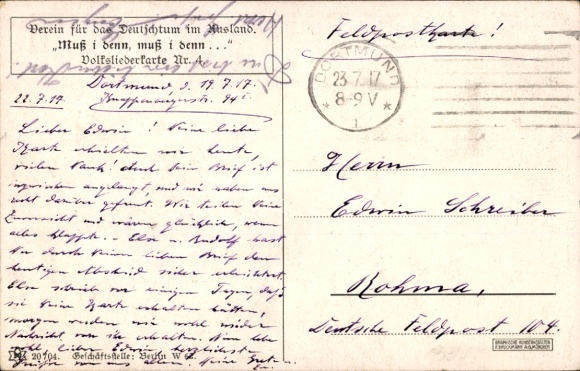 Verein für das Deutschtum im Ausland.
„Muß i denn, muß i denn..."
Volksliederkarte Nr. 4.
Feldpostkarte!
DORTMUND
23.7.17
8-9V
* 1 *
Dortmund, d. 19.7.17.
22.7.17
Lieber Edwin! Deine liebe
Karte erhielten wir heute,
vielen Dank! Auch Dein Brief ist
inzwischen angelangt, und wir haben uns
recht darüber gefreut. Wir teilen Deine
Zuversicht und wären glücklich, wenn
alles klappte. - Else u. Rudolf hast
Du durch Deinen lieben Brief den
heutigen Abschied sicher erleichtert.
Else schrieb vor einigen Tagen, daß
sie Deine Karte erhalten hätten,
morgen werden wir wohl wieder
Nachricht von ihr erhalten. Nun lebe
wohl, lieber Edwin, herzlichste
Grüße von uns allen, Deine
Herrn
Edwin Schreiber
Rohma,
Deutsche Feldpost 104.
20704. Geschäftsstelle: Berlin W 62.
GRAPHISCHE KUNSTANSTALTEN
F. BRUCKMANN A.G. MÜNCHEN